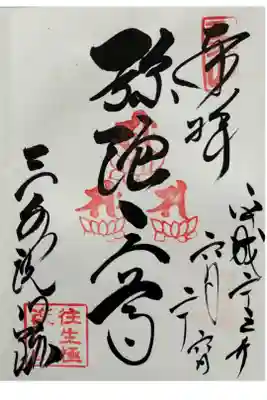 奉拝
平成二十三年
六月二十日
弥陀三尊
三千院門跡
往生極
楽院